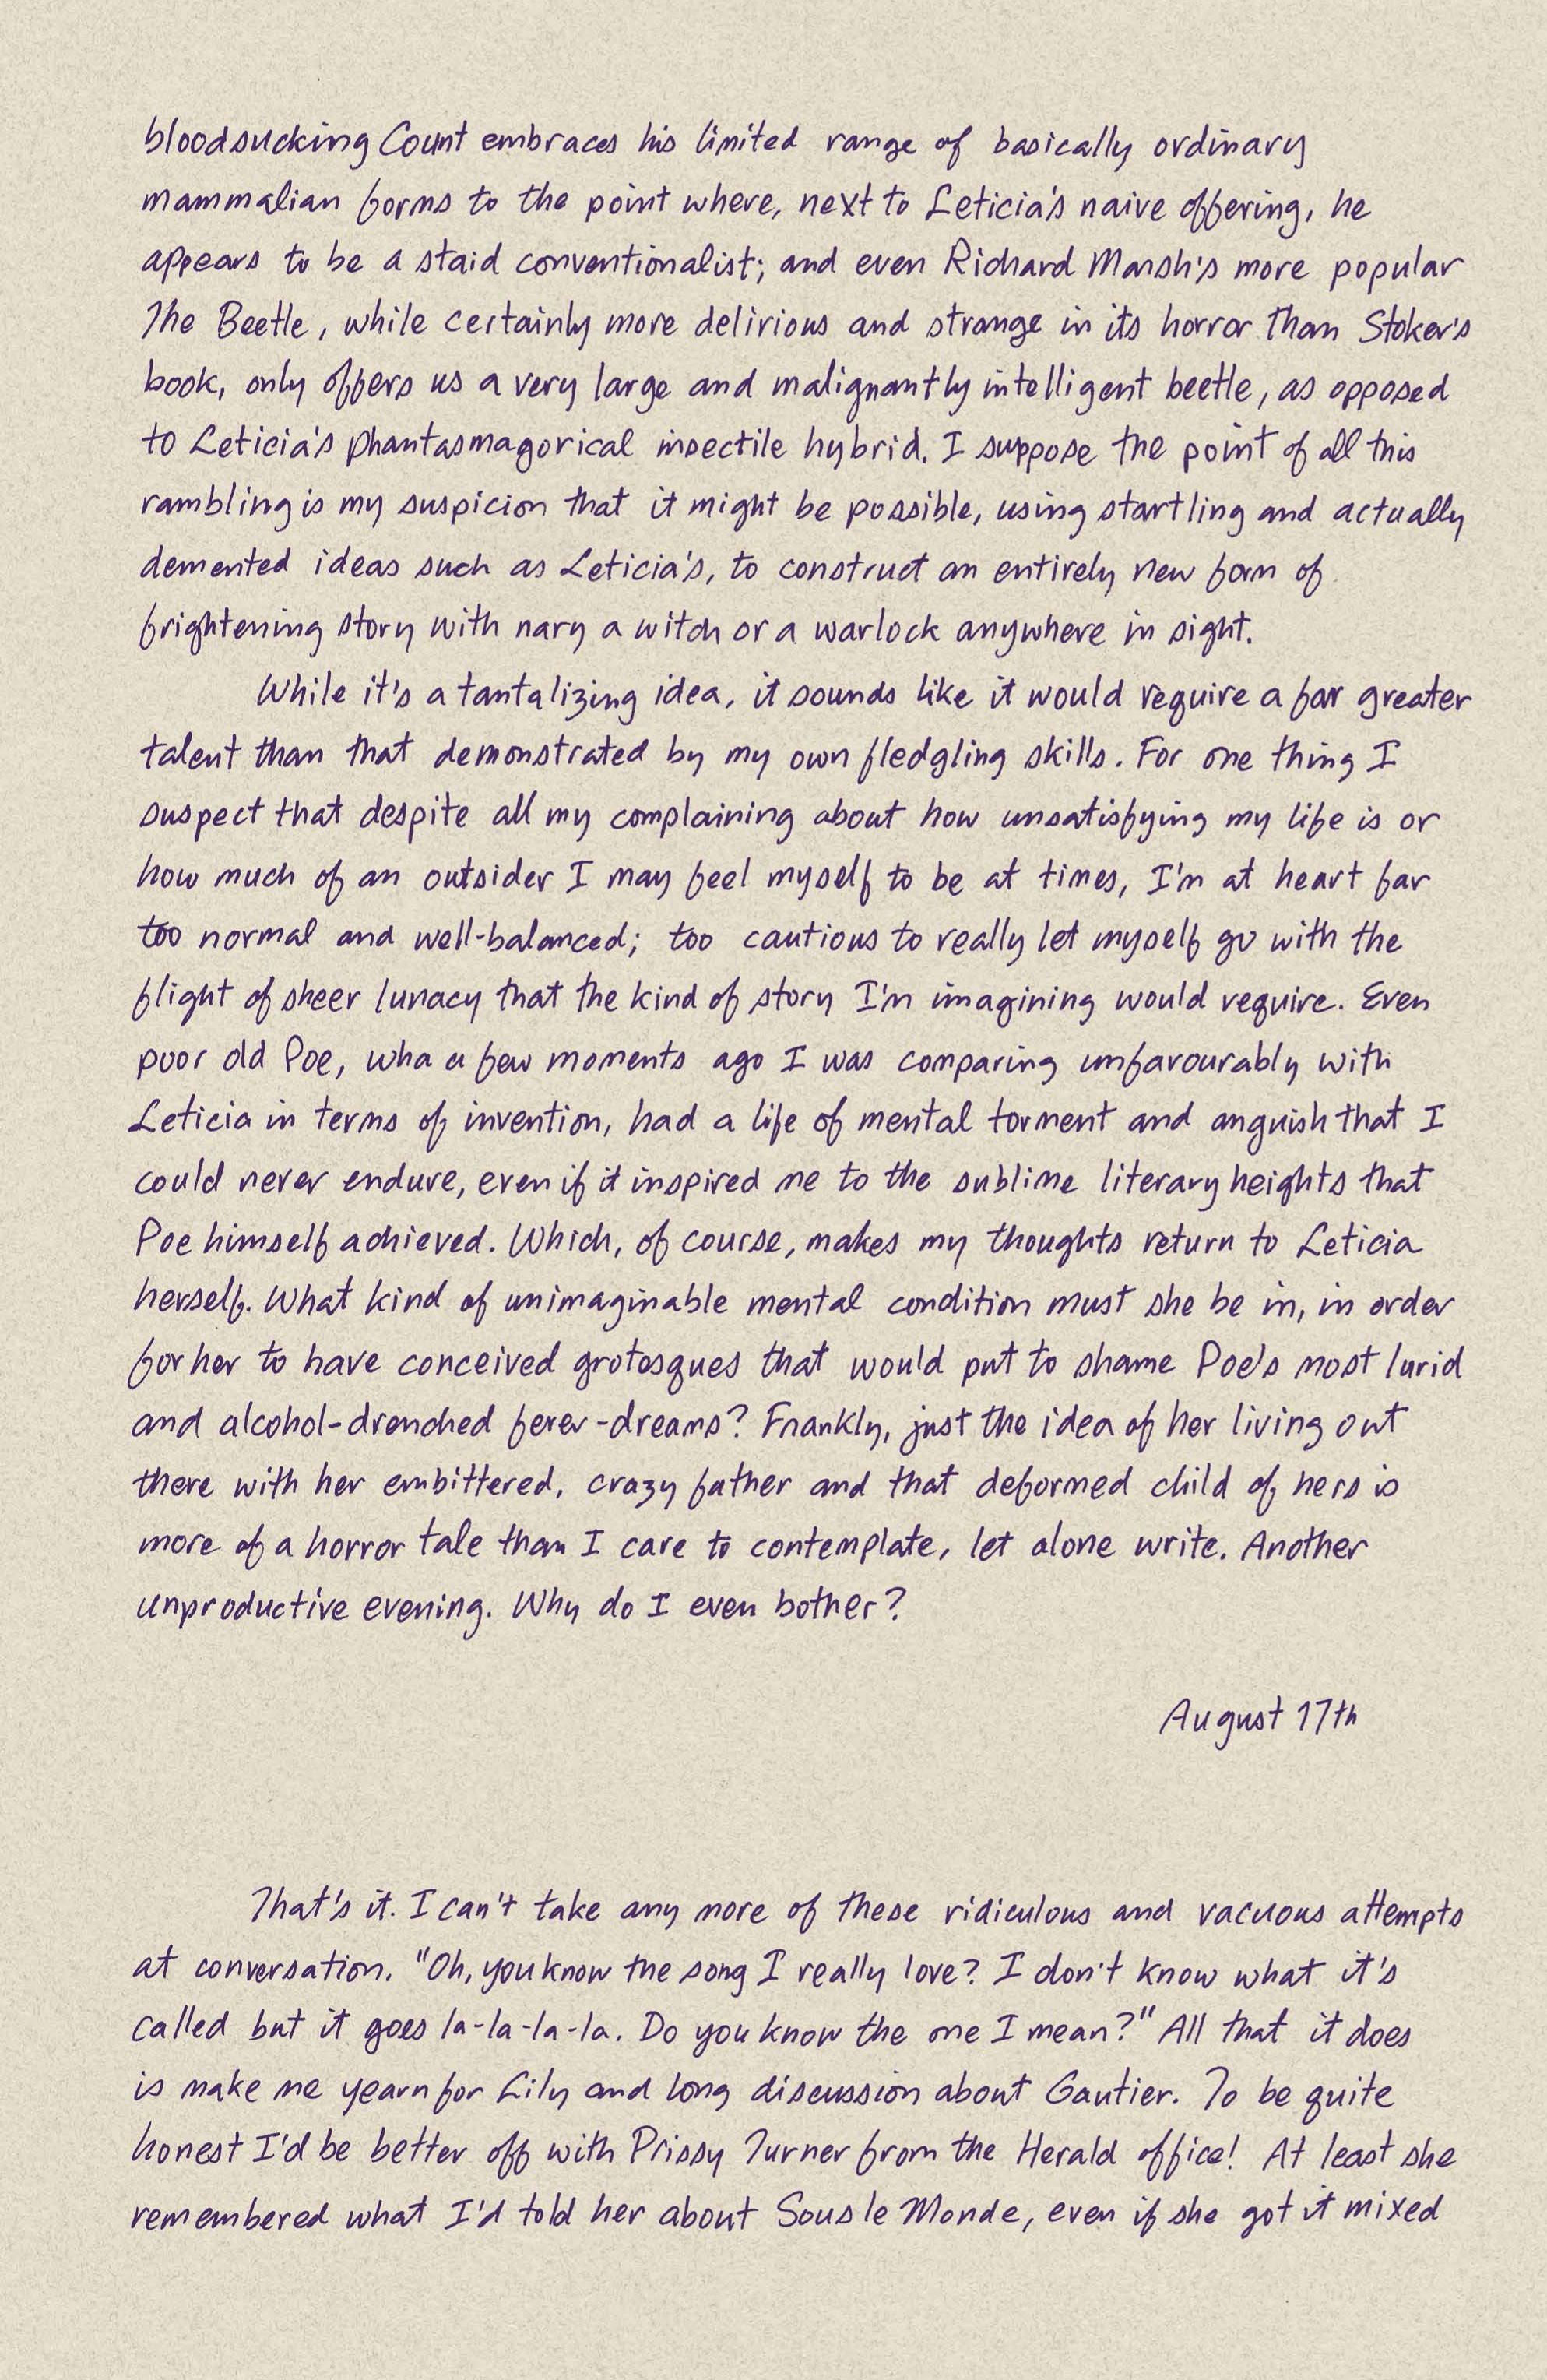 bloodsucking Count embraces his limited range of basically ordinary
mammalian forms to the point where, next to Leticia's naive offering, he
appears to be a staid conventionalist; and even Richard Marsh's more popular
The Beetle, while certainly more delirious and strange in its horror than Stoker's
book, only offers us a very large and malignantly intelligent beetle, as opposed
to Leticia's phantasmagorical insectile hybrid. I suppose the point of all this
rambling is my suspicion that it might be possible, using startling and actually
demented ideas such as Leticia's, to construct an entirely new form of
frightening story with nary a witch or a warlock anywhere in sight.
While it's a tantalizing idea, it sounds like it would require a far greater
talent than that demonstrated by my own fledgling skills. For one thing I
suspect that despite all my complaining about how unsatisfying my life is or
how much of an outsider I may feel myself to be at times, I'm at heart far
too normal and well-balanced; too cautious to really let myself go with the
flight of sheer lunacy that the kind of story I'm imagining would require. Even
poor old Poe, who a few moments ago I was comparing unfavourably with
Leticia in terms of invention, had a life of mental torment and anguish that I
could never endure, even if it inspired me to the sublime literary heights that
Poe himself achieved. Which, of course, makes my thoughts return to Leticia
herself. What kind of unimaginable mental condition must she be in, in order
for her to have conceived grotesques that would put to shame Poe's most lurid
and alcohol-drenched fever-dreams? Frankly, just the idea of her living out
there with her embittered, crazy father and that deformed child of hers is
more of a horror tale than I care to contemplate, let alone write. Another
unproductive evening. Why do I even bother?
August 17th
That's it. I can't take any more of these ridiculous and vacuous attempts
at conversation. "Oh, you know the song I really love? I don't know what it's
called but it goes la-la-la-la. Do you know the one I mean?" All that it does
is make me yearn for Lily and long discussion about Gautier. To be quite
honest I'd be better off with Prissy Turner from the Herald office! At least she
remembered what I'd told her about Sous le Monde, even if she got it mixed